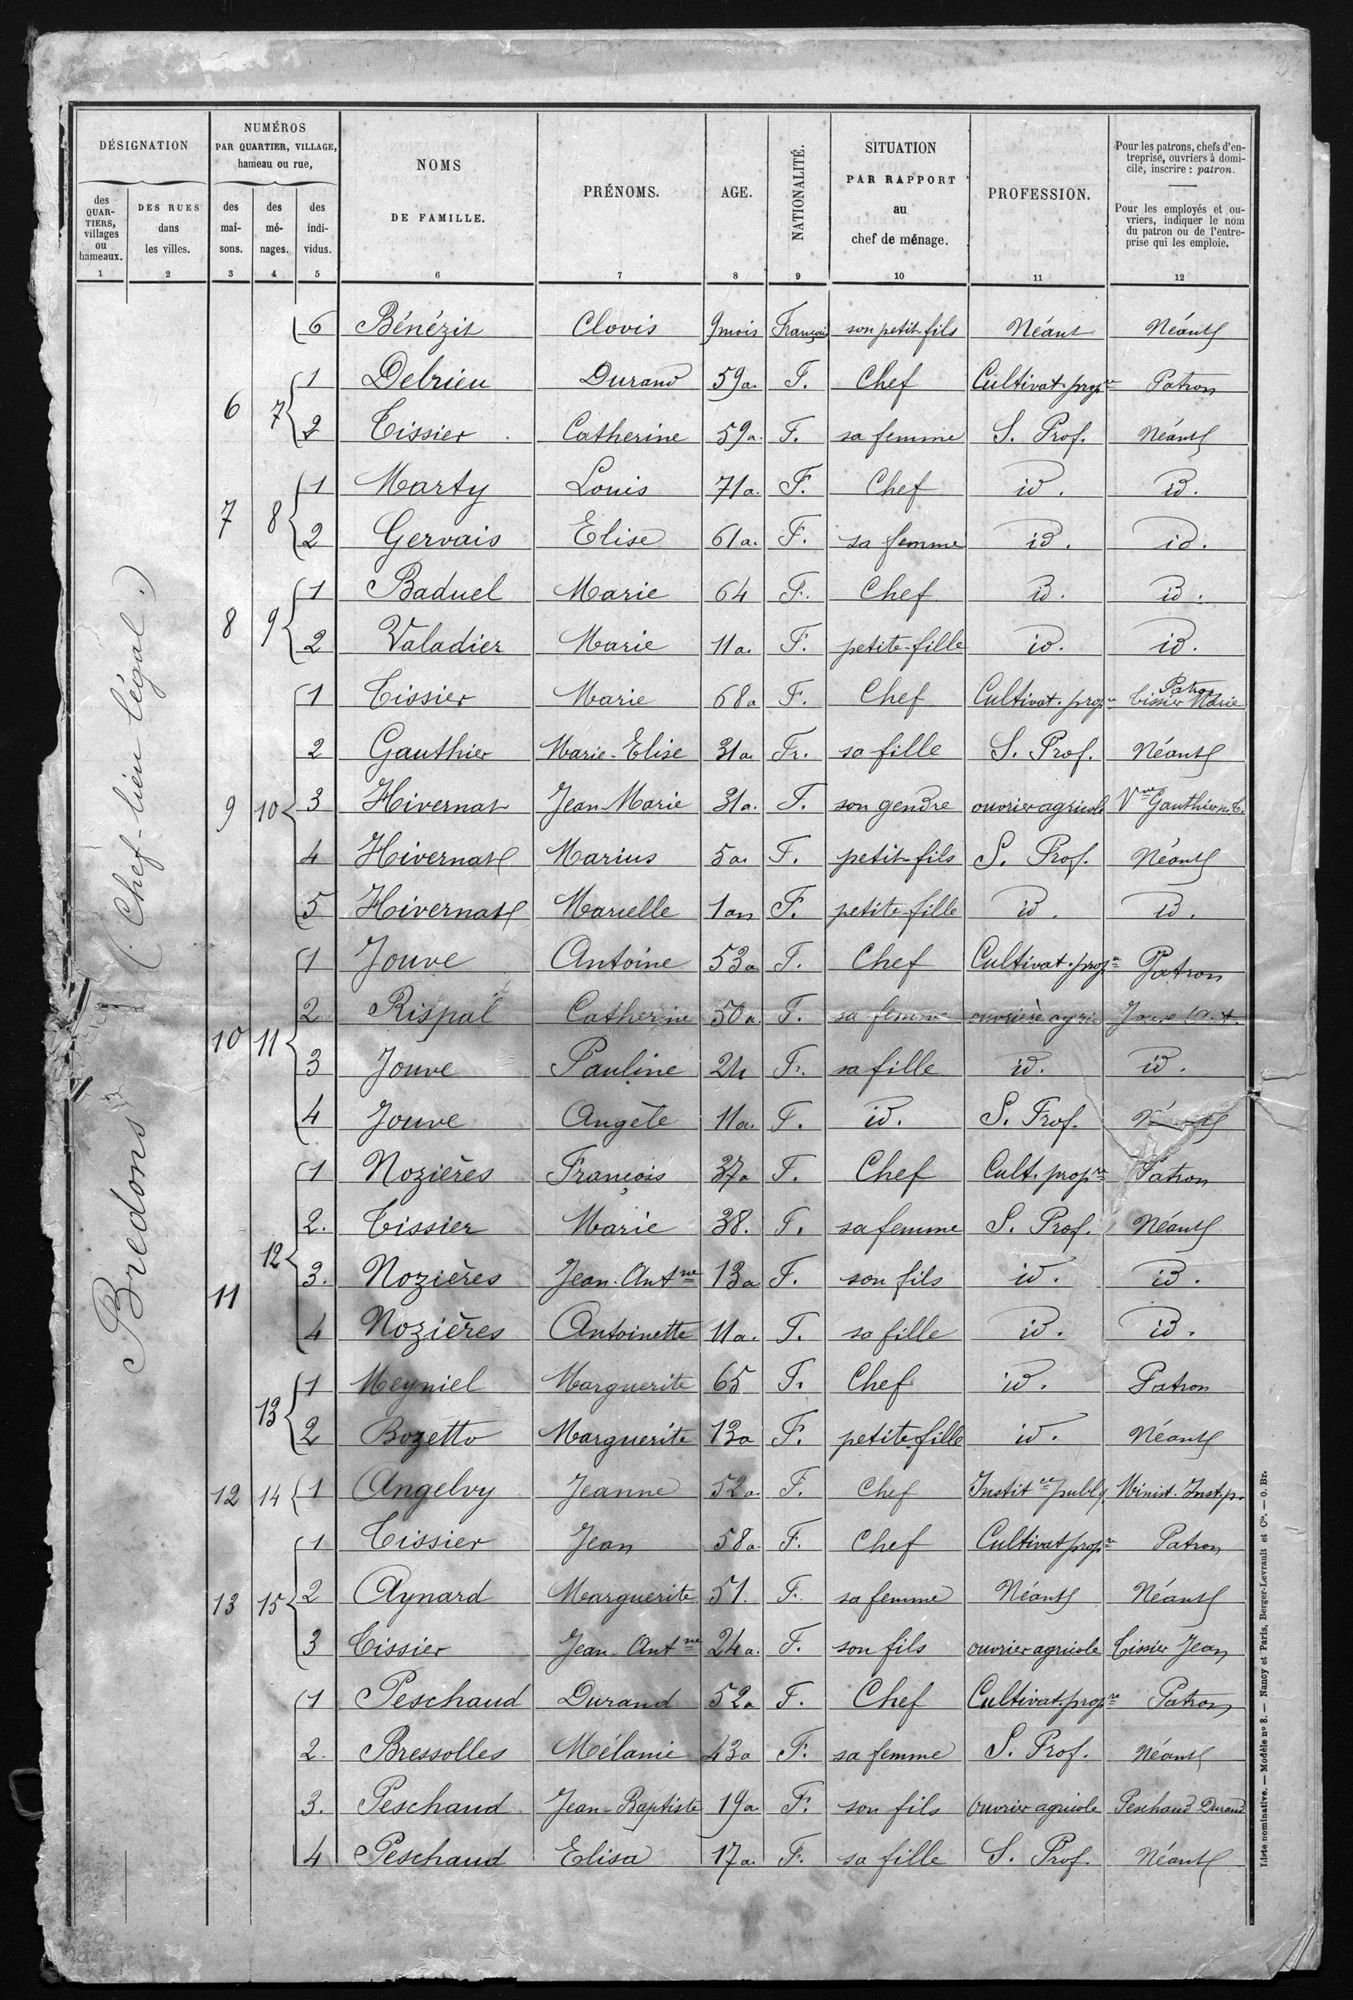 DÉSIGNATION
des QUARTIERS, villages ou hameaux. 1
DES RUES dans les villes. 2
NUMÉROS PAR QUARTIER, VILLAGE, hameau ou rue,
des maisons. 3
des ménages. 4
des individus. 5
NOMS DE FAMILLE. 6
PRÉNOMS. 7
AGE. 8
NATIONALITÉ. 9
SITUATION PAR RAPPORT au chef de ménage. 10
PROFESSION. 11
Pour les patrons, chefs d'entreprise, ouvriers à domicile, inscrire : patron.
Pour les employés et ouvriers, indiquer le nom du patron ou de l'entreprise qui les emploie. 12
Bredons (Chef-lieu légal.)
6 Bénézit Clovis 9 mois Français son petit-fils Néant Néant
6 7 1 Delrieu Durand 59 a. F. Chef Cultivat. propre Patron
2 Tissier Catherine 59 a. F. sa femme S. Prof. Néant
7 8 1 Marty Louis 71 a. F. Chef id. id.
2 Gervais Elise 61 a. F. sa femme id. id.
8 9 1 Baduel Marie 64 F. Chef id. id.
2 Valadier Marie 11 a. F. petite-fille id. id.
1 Tissier Marie 68 a F. Chef Cultivat. propre Patron Tissier Marie
2 Gauthier Marie-Elise 31 a. Fr. sa fille S. Prof. Néant
9 10 3 Hivernat Jean-Marie 31 a. F. son gendre ouvrier agricole Vve Gauthier n. T.
4 Hivernat Marius 5 a. F. petit-fils S. Prof. Néant
5 Hivernat Marielle 1 an F. petite-fille id. id.
1 Jouve Antoine 53 a F. Chef Cultivat. propre Patron
2 Rispal Catherine 50 a. F. sa femme ouvrière agric Jouve Ant.
10 11 3 Jouve Pauline 24 F. sa fille id. id.
4 Jouve Angèle 11 a. F. id. S. Prof. Néant
1 Nozières François 37 a F. Chef Cult. propre Patron
2. Tissier Marie 38. F. sa femme S. Prof. Néant
11 12 3. Nozières Jean-Antne 13 a F. son fils id. id.
4 Nozières Antoinette 11 a. F. sa fille id. id.
13 1 Meyniel Marguerite 65 F. Chef id. Patron
2 Bozetto Marguerite 13 a F. petite-fille id. Néant
12 14 1 Angelvy Jeanne 52 a. F. Chef Institce publq. Minist. Inst. p.
1 Tissier Jean 58 a. F. Chef Cultivat propre Patron
13 15 2 Aynard Marguerite 51. F. sa femme Néant Néant
3 Tissier Jean-Antne 24 a. F. son fils ouvrier agricole Tissier Jean
1 Peschaud Durand 52 a F. Chef Cultivat. propre Patron
2. Bressolles Mélanie 43 a F. sa femme S. Prof. Néant
3. Peschaud Jean-Baptiste 19 a F. son fils ouvrier agricole Peschaud Durand
4 Peschaud Elisa 17 a. F. sa fille S. Prof. Néant
Liste nominative. — Modèle nº 8. — Nancy et Paris, Berger-Levrault et Cie. — O. Br.